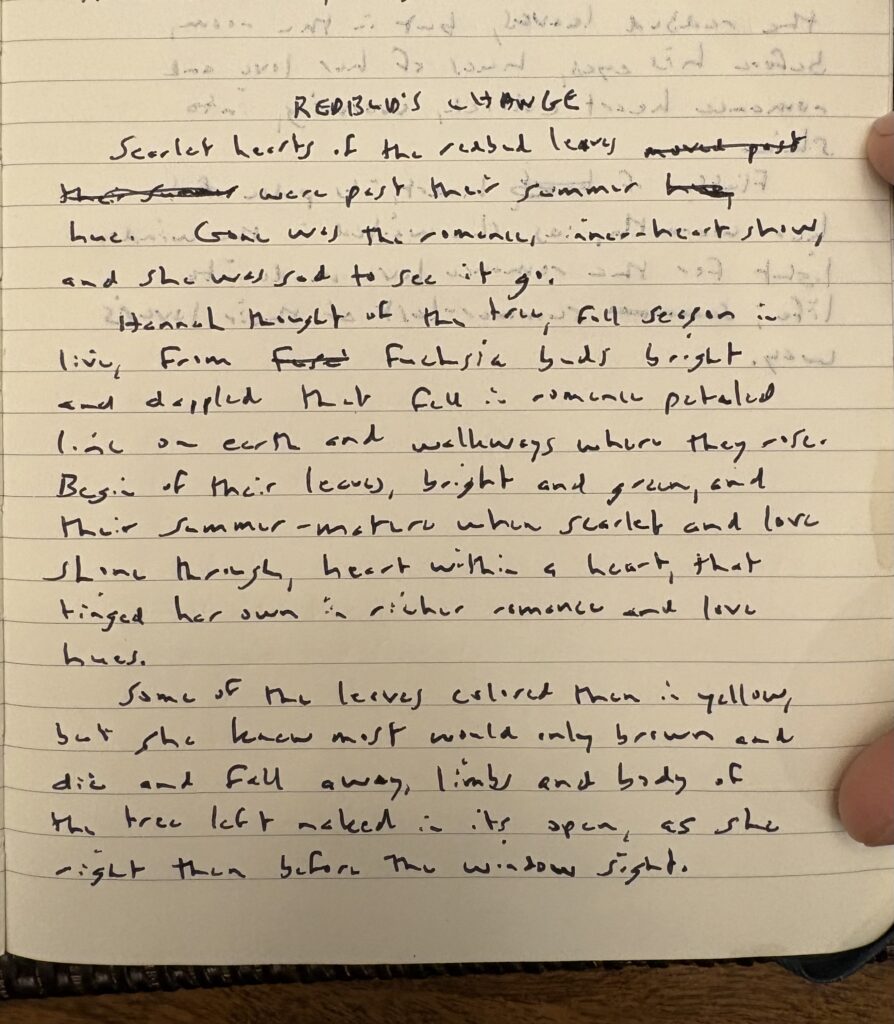 REDBUD'S CHANGE
Scarlet hearts of the redbud leaves moved past
their summer were past their summer hue,
hue. Gone was the romance, inner-heart show,
and she was sad to see it go.
Hannah thought of the tree, full season in
live, from fuchsia buds bright
and dappled that fell in romance petaled
line on earth and walkways where they rose.
Begin of their leaves, bright and green, and
their summer-mature when scarlet and love
shone through, heart within a heart, that
tinged her own in richer romance and love
hues.
Some of the leaves colored then in yellow,
but she knew most would only brown and
die and fall away, limbs and body of
the tree left naked in its open, as she
right then before the window sight.